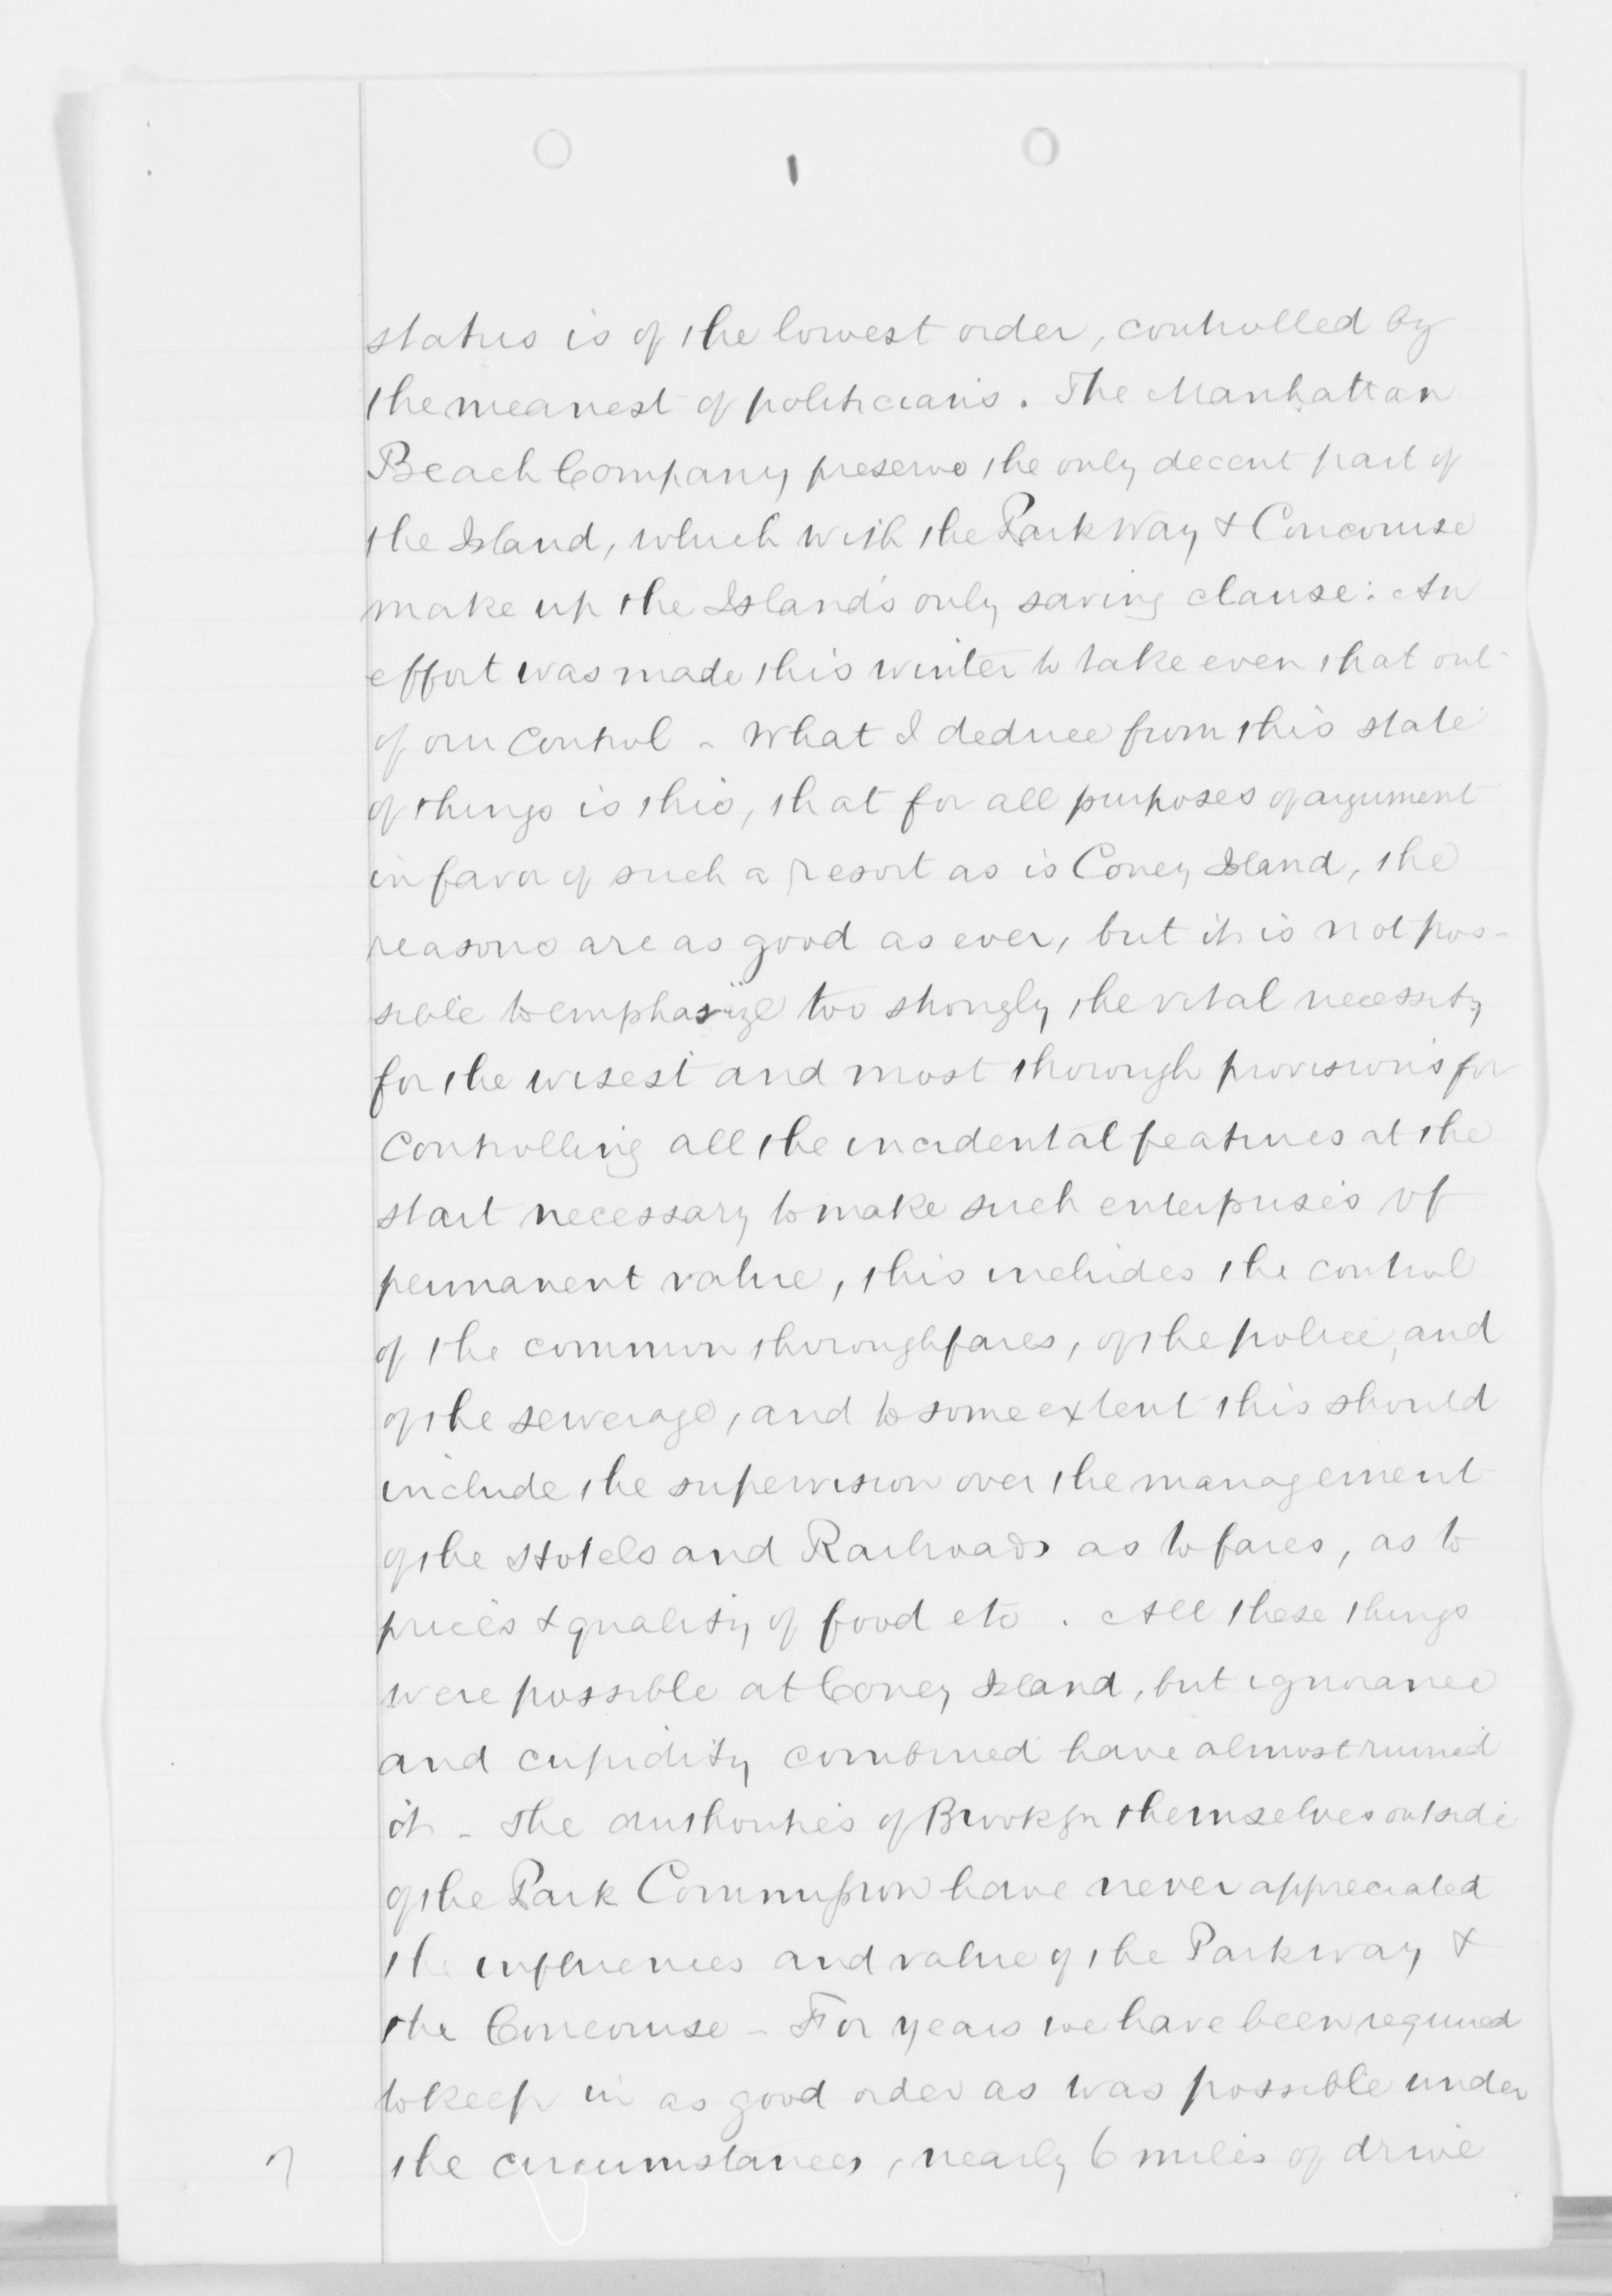 status is of the lowest order, controlled by
the meanest of politicians. The Manhattan
Beach Company preserve the only decent part of
the Island, which with the Park Way & Concourse
make up the Island's only saving clause: An
effort was made this winter to take even that out
of our control - What I deduce from this state
of things is this, that for all purposes of argument
in favor of such a resort as is Coney Island, the
reasons are as good as ever, but it is not pos-
sible to emphasize too strongly the vital necessity
for the wisest and most thorough provisions for
controlling all the incidental features at the
start necessary to make such enterprises of
permanent value, this includes the control
of the common thoroughfares, of the police, and
of the sewerage, and to some extent this should
include the supervision over the management
of the Hotels and Railroads as to fares, as to
prices & quality of food etc. All these things
were possible at Coney Island, but ignorance
and cupidity combined have almost ruined
it - The authorities of Brooklyn themselves outside
of the Park Commission have never appreciated
the influences and value of the Parkway &
the Concourse - For years we have been required
to keep in as good order as was possible under
the circumstances, nearly 6 miles of drive